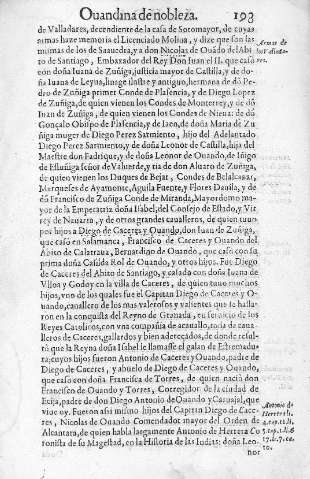 Ouandina de nobleza. 193
de Valladares, decendiente de la casa de Sotomayor, de cuyas
armas haze memoria el Licenciado Molina, y dize que son las
mismas de los de Saauedra, y a don Nicolas de Ouãdo del Abi
to de Santiago, Embaxador del Rey Don Iuan el II. que casò
con doña Iuana de Zuñiga, justicia mayor de Castilla, y de do-
ña Iuana de Leyua, linage ilustre y antiguo, hermana de dõ Pe-
dro de Zuñiga primer Conde de Plasencia, y de Diego Lopez
de Zuñiga, de quien vienen los Condes de Monterrey, y de dõ
Iuan de Zuñiga, de quien vienen los Condes de Nieua: de dõ
Gonçalo Obispo de Plasencia, y de Iaen, de doña Maria de Zu
ñiga muger de Diego Perez Sarmiento, hijo del Adelantado
Diego Perez Sarmiento, y de doña Leonor de Castilla, hija del
Maestre don Fadrique, y de doña Leonor de Ouando, de Iñigo
de Estuñiga señor de Valuerde, y tia de don Aluaro de Zuñiga,
de quien vienen los Duques de Bejar, Condes de Belalcaçar,
Marqueses de Ayamonte, Aguila Fuente, y Flores Dauila, y de
dõ Francisco de Zuñiga Conde de Miranda, Mayordomo ma-
yor de la Emperatriz doña Isabel, del Consejo de Estado, y Vir
rey de Nauarra, y de otros grandes caualleros, de quien tuuo
por hijos a Diego de Caceres y Ouando, don Iuan de Zuñiga,
que casò en Salamanca, Francisco de Caceres y Ouando del
Abito de Calatraua, Bernardino de Ouando, que casò con su
prima doña Casilda Rol de Ouando, y otros hijos. Fue Diego
de Caceres del Abito de Santiago, y casada con doña Iuana de
Vlloa y Godoy en la villa de Caceres, de quien tuuo muchos
hijos, vno de los quales fue el Capitan Diego de Caceres y O-
uando, cauallero de los mas valerosos y valientes que se halla-
ron en la conquista del Reyno de Granada, en seruicio de los
Reyes Catolicos, con vna compañia de acauallo, toda de caua-
lleros de Caceres, gallardos y bien adereçados, de donde resul-
tò que la Reyna doña Isabel le llamasse el galan de Estremadu-
ra; cuyos hijos fueron Antonio de Caceres y Ouando, padre
de Diego de Caceres, y abuelo de Diego de Caceres y Ouando,
que casò con doña Francisca de Torres, de quien naciò don
Francisco de Ouando y Torres, Corregidor de la ciudad de
Ecija, padre de don Diego Antonio de Ouando y Caruajal, que
viue oy. Fueron assi mismo hijos del Capitan Diego de Cace-
res, Nicolas de Ouando Comendador mayor del Orden de
Alcantara, de quien habla largamente Antonio de Herrera Co
ronista de su Magestad, en la Historia de las Indias: doña Leo-
nor
Armas de
Antonio de
Herrera li.